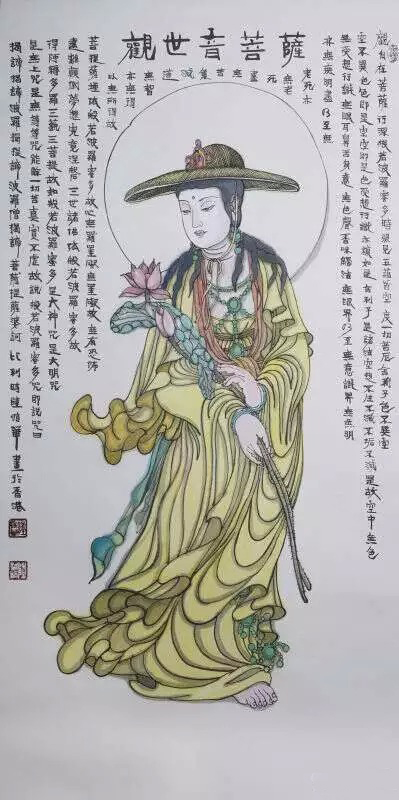 觀世音菩薩
觀自在菩薩行深般若波羅蜜多時照見五蘊皆空度一切苦厄舍利子色不異空
空不異色色即是空空即是色受想行識亦復如是舍利子是諸法空想不生不滅不垢不滅是故空中無色
無受想行識無眼耳鼻舌身意無色聲香味觸法無眼界乃至無意識界無無明
亦無無明盡乃至無
老死亦
無老
死
盡
無
苦
集
滅
道
無智
亦無得
以無所得故
菩提薩埵依般若波羅蜜多故心無罣礙無罣礙故無有恐怖
遠離顛倒夢想究竟涅槃三世諸佛依般若波羅蜜多故
得阿耨多羅三藐三菩提故知般若波羅蜜多是大神咒是大明咒
是無上咒是無等等咒能除一切苦真實不虛故說般若波羅蜜多咒即說咒曰
揭諦揭諦波羅揭諦波羅僧揭諦菩提薩婆訶 比利時陳 華畫於香港